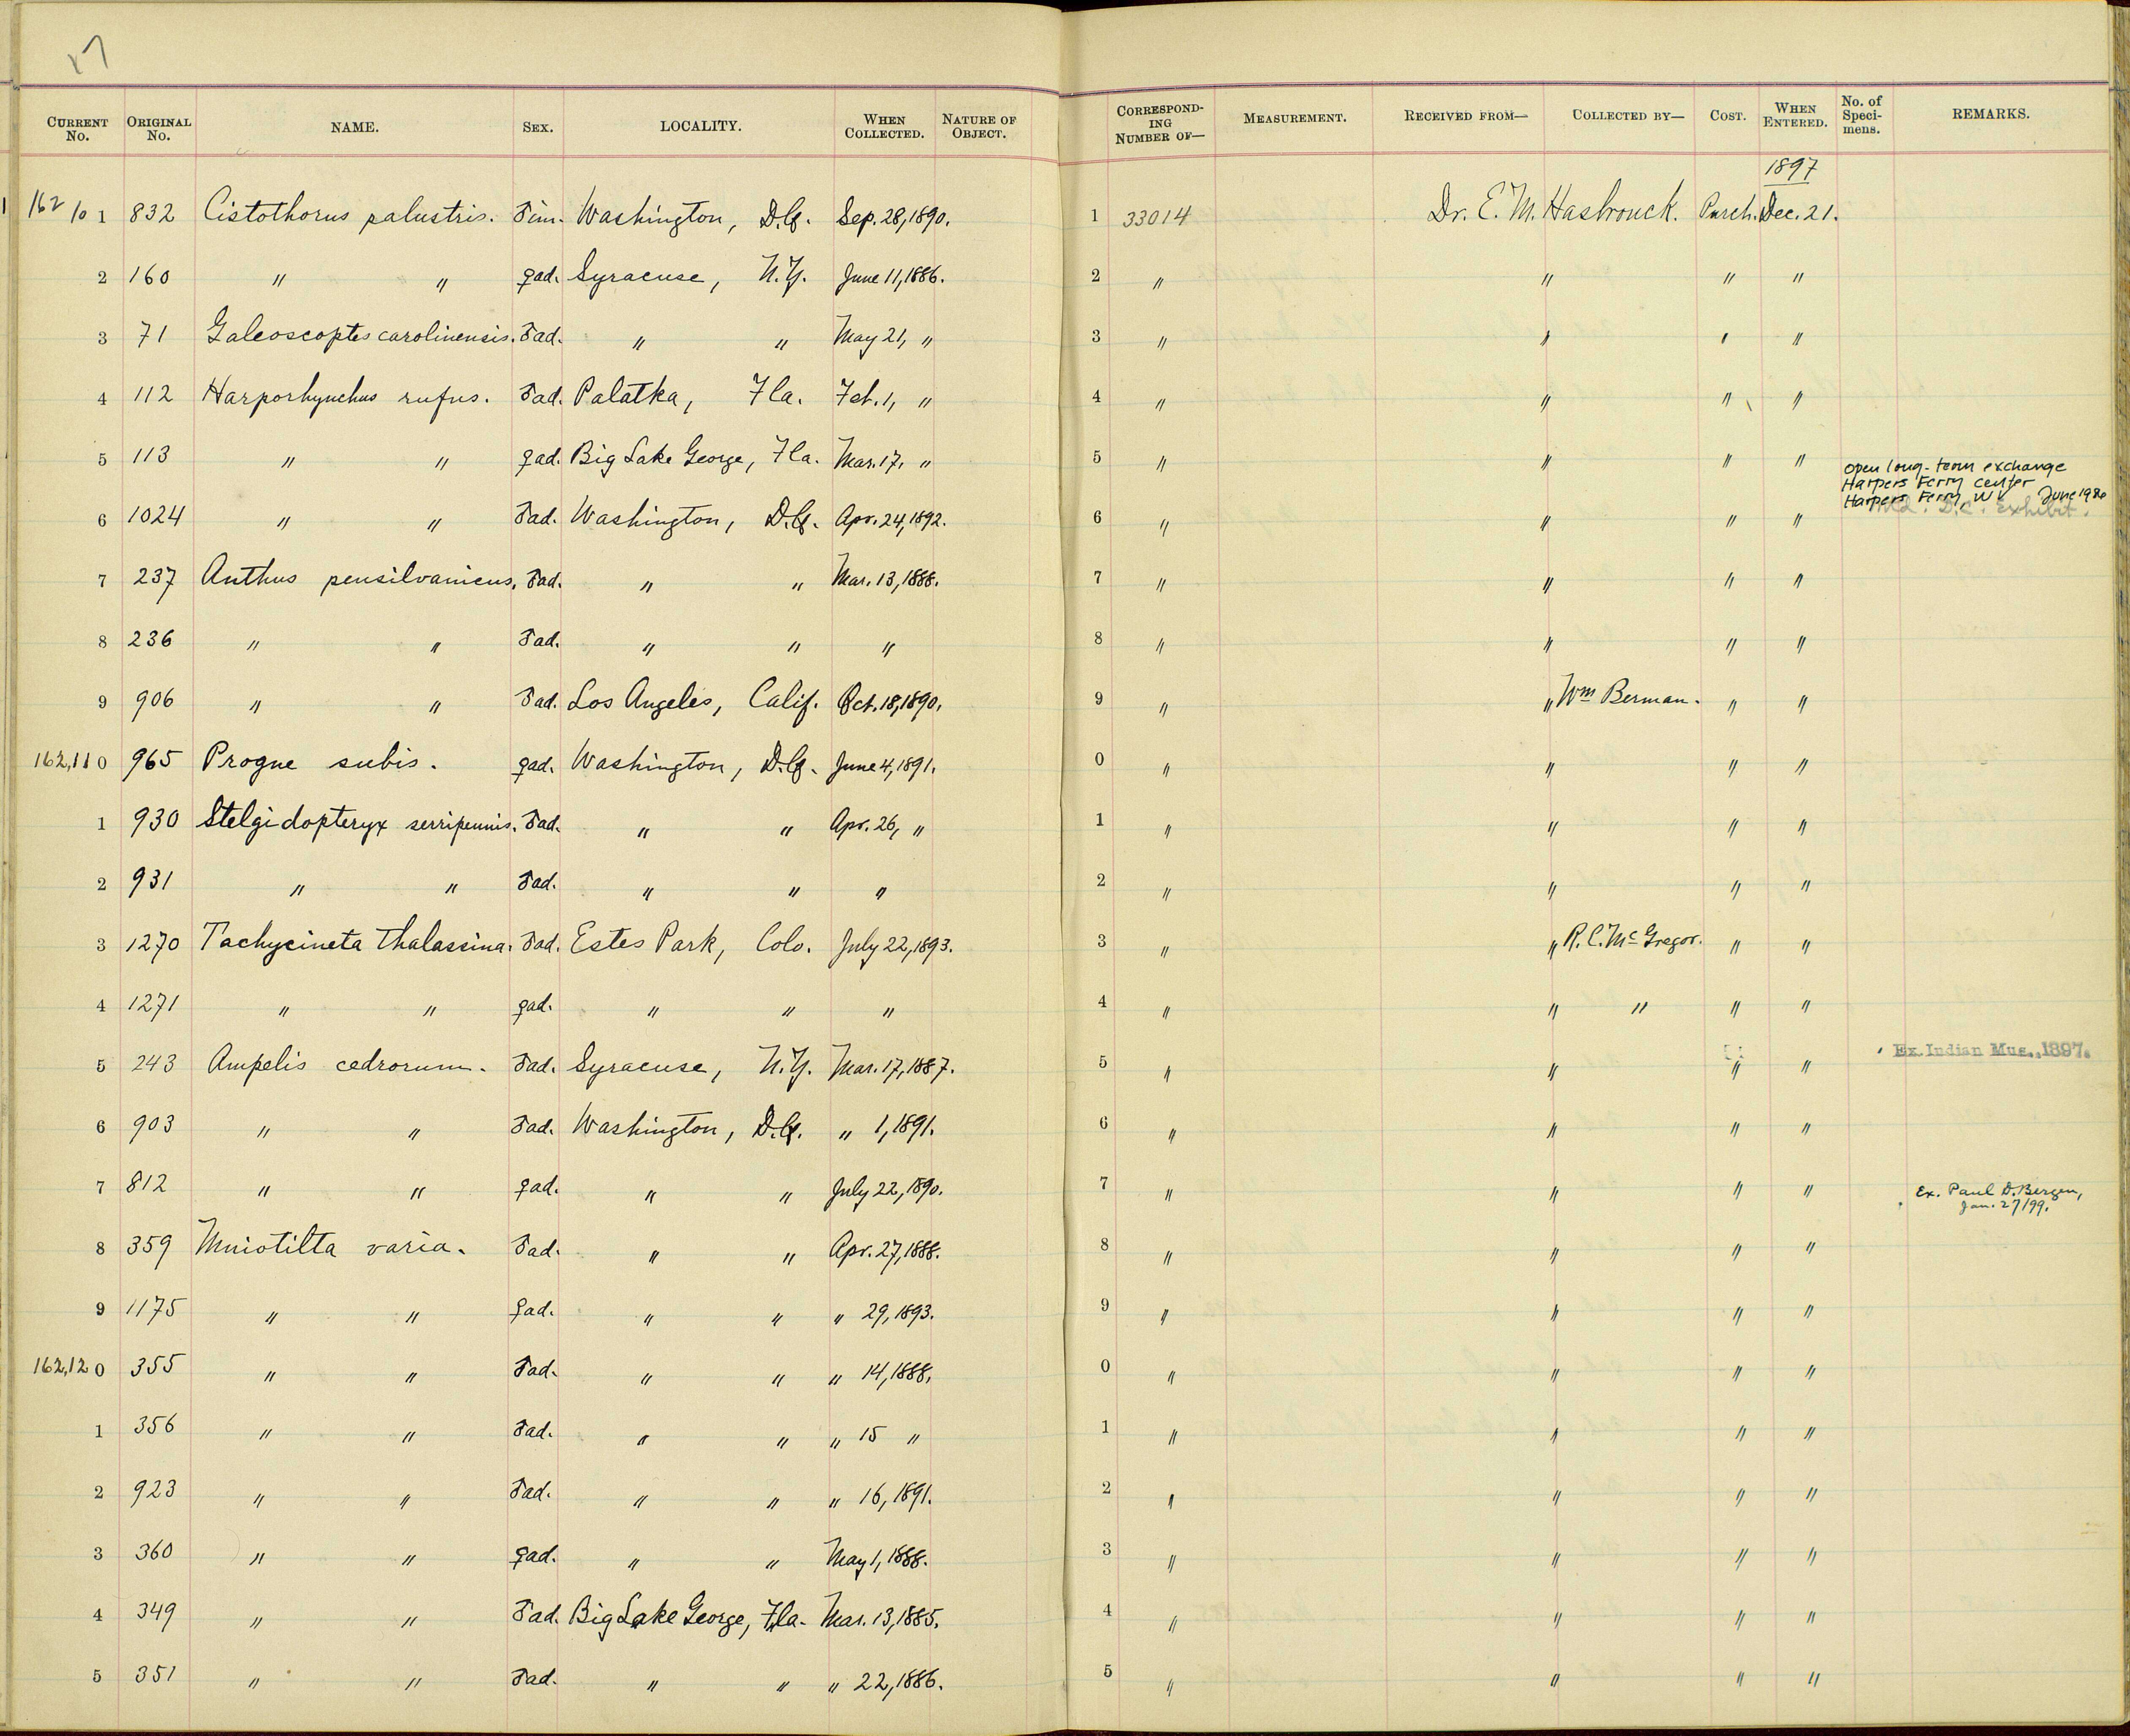 17
CURRENT No. ORIGINAL No. NAME. SEX. LOCALITY. WHEN COLLECTED. NATURE OF OBJECT. CORRESPONDING NUMBER OF— MEASUREMENT. RECEIVED FROM— COLLECTED BY— COST. WHEN ENTERED. No. of Specimens. REMARKS.
1897
162 10 1 832 Cistothorus palustris. ♂im. Washington, D.C. Sep. 28, 1890. 1 33014 Dr. E. M. Hasbrouck. Purch. Dec. 21.
2 160 " " ♀ad. Syracuse, N.Y. June 11, 1886. 2 " " " "
3 71 Galeoscoptes carolinensis. ♂ad. " " May 21, " 3 " " " "
4 112 Harporhynchus rufus. ♂ad. Palatka, Fla. Feb. 1, " 4 " " " "
5 113 " " ♀ad. Big Lake George, Fla. Mar. 17, " 5 " " " "
Open long-term exchange
Harpers Ferry Center
Harpers Ferry, WV June 1980
6 1024 " " ♂ad. Washington, D.C. Apr. 24, 1892. 6 " " " " D.C. Exhibit.
7 237 Anthus pensilvanicus. ♂ad. " " Mar. 13, 1888. 7 " " " "
8 236 " " ♂ad. " " " 8 " " " "
9 906 " " ♂ad. Los Angeles, Calif. Oct. 18, 1890. 9 " " Wm Berman. " "
162,11 0 965 Progne subis. ♀ad. Washington, D.C. June 4, 1891. 0 " " " "
1 930 Stelgidopteryx serripennis. ♂ad. " " Apr. 26, " 1 " " " "
2 931 " " ♂ad. " " " 2 " " " "
3 1270 Tachycineta thalassina. ♂ad. Estes Park, Colo. July 22, 1893. 3 " " R. C. McGregor. " "
4 1271 " " ♀ad. " " " 4 " " " " "
5 243 Ampelis cedrorum. ♂ad. Syracuse, N.Y. Mar. 17, 1887. 5 " " " " Ex. Indian Mus., 1897.
6 903 " " ♂ad. Washington, D.C. " 1, 1891. 6 " " " "
7 812 " " ♀ad. " " July 22, 1890. 7 " " " " Ex. Paul D. Bergen,
Jan. 27/99.
8 359 Mniotilta varia. ♂ad. " " Apr. 27, 1888. 8 " " " "
9 1175 " " ♀ad. " " " 29, 1893. 9 " " " "
162,12 0 355 " " ♂ad. " " " 14, 1888. 0 " " " "
1 356 " " ♂ad. " " " 15 " 1 " " " "
2 923 " " ♂ad. " " " 16, 1891. 2 " " " "
3 360 " " ♀ad. " " May 1, 1888. 3 " " " "
4 349 " " ♂ad. Big Lake George, Fla. Mar. 13, 1885. 4 " " " "
5 351 " " ♂ad. " " " 22, 1886. 5 " " " "